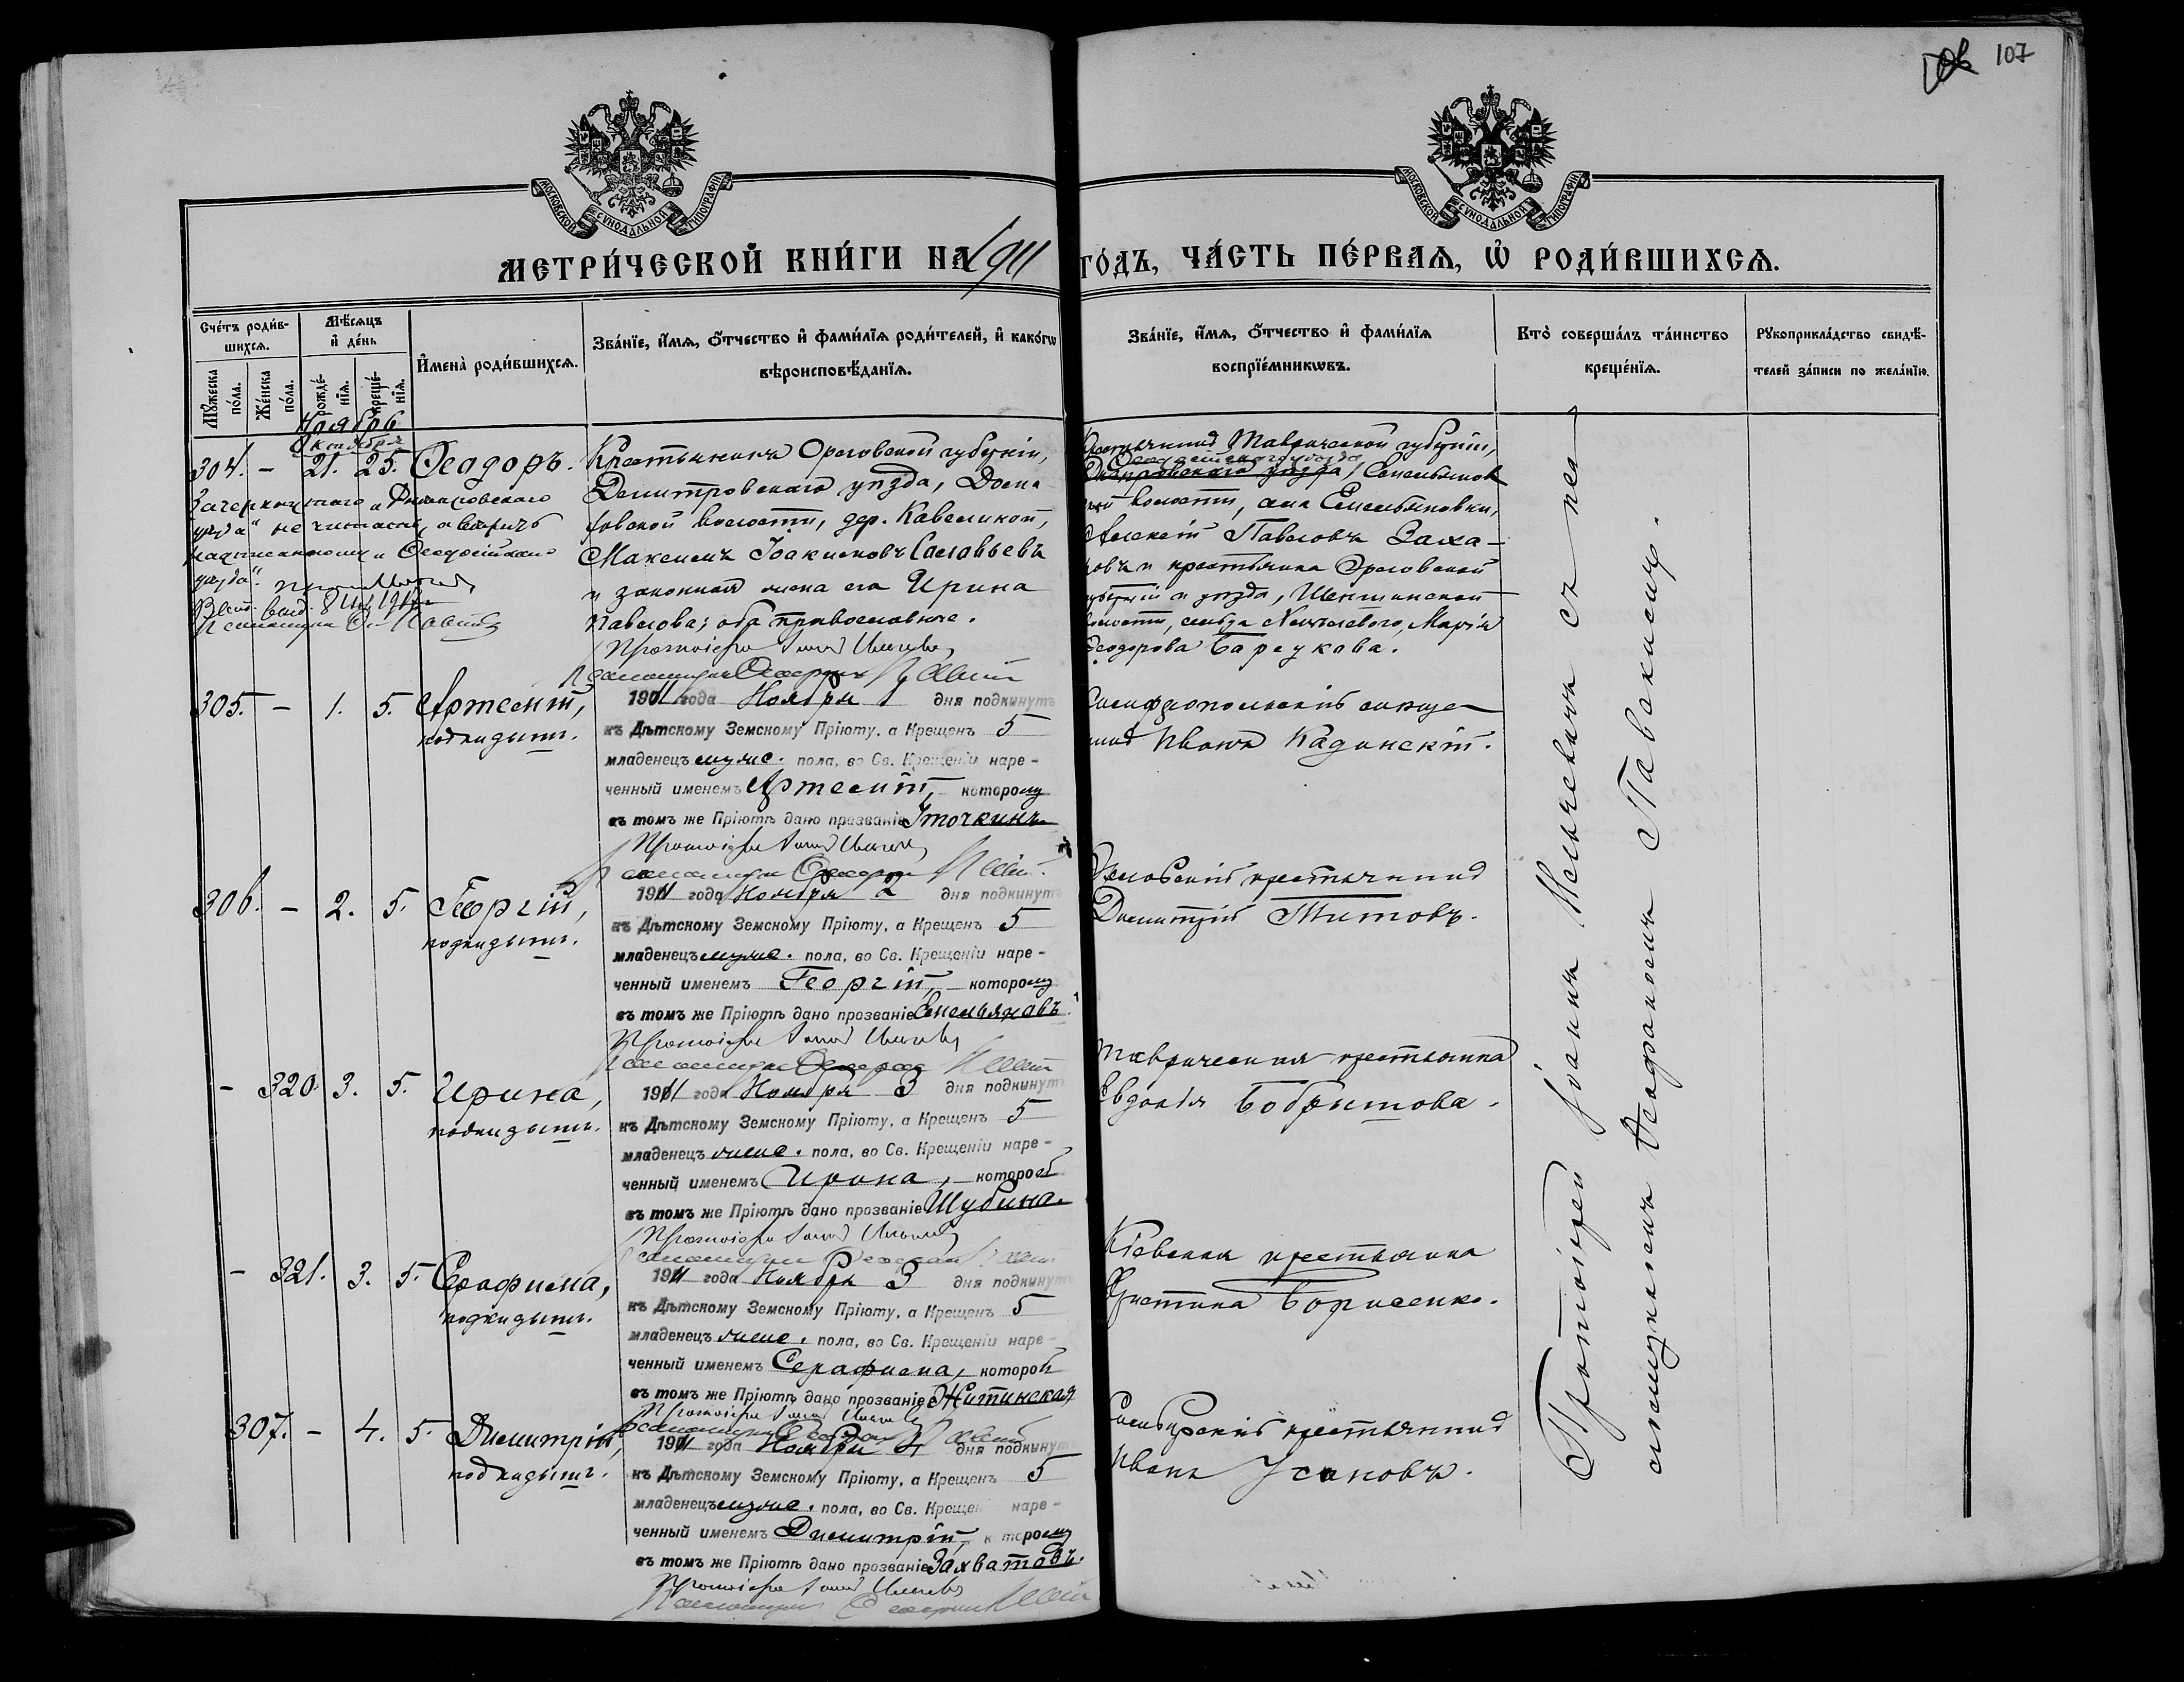 107
МОСКОВСКОЙ СѴНОДАЛЬНОЙ ТИПОГРАФІИ
МОСКОВСКОЙ СѴНОДАЛЬНОЙ ТИПОГРАФІИ
МЕТРИ́ЧЕСКОЙ КНИ́ГИ НА 1911 ГО́ДЪ, ЧА́СТЬ ПЕ́РВАѦ, Ѡ҆ РОДИ́ВШИХСѦ.
Сче́тъ роди́в-
шихсѧ.
Мꙋ́жеска по́ла.
Же́нска по́ла.
Мѣ́сѧцъ
и҆ де́нь
рожде́-
нїѧ.
креще́-
нїѧ.
И҆мена̀ роди́вшихсѧ.
Зва́нїе, и҆́мѧ, ѻ҆́тчество и҆ фами́лїѧ роди́телей, и҆ како́гѡ
вѣроисповѣ́данїѧ.
Зва́нїе, и҆́мѧ, ѻ҆́тчество и҆ фами́лїѧ
воспрїе́мникѡвъ.
Кто̀ соверша́лъ та́инство
креще́нїѧ.
Рꙋкоприкла́дство свидѣ́-
телей за́писи по жела́нїю.
Ноябрь
Октября
304. - 21. 25. Ѳеодоръ.
Зачеркнутаго „Днепровскаго
уезда" не читать, а верить
надписанному „Ѳеодосійскаго
уезда".
Крестьянинъ Орловской губерніи,
Дмитровскаго уѣзда,
волости, дер. Кавелиной,
Максимъ Іоакимовъ Соловьевъ
и законная жена его Ирина
Павлова; оба православные.
Протоіерей
Псаломщикъ
Крестьянинъ Таврической губерніи,
Ѳеодосійскаго уѣзда
Днепровскаго уѣзда,
волости, села Емельяновки,
Алексій Павловъ Заха-
ровъ и крестьянка Орловской
губерніи и уѣзда,
волости, сельца Марія
Ѳеодорова Барсукова.
305. - 1. 5. Артемій,
подкидышъ.
1911 года Ноября 1 дня подкинутъ
къ Дѣтскому Земскому Пріюту, а Крещенъ 5
младенецъ муже. пола, во Св. Крещеніи наре-
ченный именемъ Артемій, которому
въ томъ же Пріютѣ дано прозваніе Уточкинъ
Протоіерей
Псаломщикъ
Симферопольскій мѣща-
нинъ Иванъ Кадинскій.
306. - 2. 5. Георгій,
подкидышъ.
1911 года Ноября 2 дня подкинутъ
къ Дѣтскому Земскому Пріюту, а Крещенъ 5
младенецъ муже. пола, во Св. Крещеніи наре-
ченный именемъ Георгій, которому
въ томъ же Пріютѣ дано прозваніе Емельяновъ.
Протоіерей
Псаломщикъ
Орловскій крестьянинъ
Димитрій Титовъ.
- 320. 3. 5. Ирина,
подкидышъ.
1911 года Ноября 3 дня подкинутъ
къ Дѣтскому Земскому Пріюту, а Крещенъ 5
младенецъ жене. пола, во Св. Крещеніи наре-
ченный именемъ Ирина, которой
въ томъ же Пріютѣ дано прозваніе Шубина.
Протоіерей
Псаломщикъ
Таврическая крестьянка
Евдокія Бобрышова.
- 321. 3. 5. Серафима,
подкидышъ.
1911 года Ноября 3 дня подкинутъ
къ Дѣтскому Земскому Пріюту, а Крещенъ 5
младенецъ жене. пола, во Св. Крещеніи наре-
ченный именемъ Серафима, которой
въ томъ же Пріютѣ дано прозваніе Житинская
Протоіерей
Псаломщикъ
Кіевская крестьянка
Христина Борисенко.
307. - 4. 5. Димитрій,
подкидышъ.
1911 года Ноября 4 дня подкинутъ
къ Дѣтскому Земскому Пріюту, а Крещенъ 5
младенецъ муже. пола, во Св. Крещеніи наре-
ченный именемъ Димитрій, которому
въ томъ же Пріютѣ дано прозваніе Захватовъ.
Протоіерей
Псаломщикъ
Симбирскій крестьянинъ
Иванъ Усановъ.
Протоіерей Іоаннъ съ пса-
ломщикомъ Ѳеофаномъ